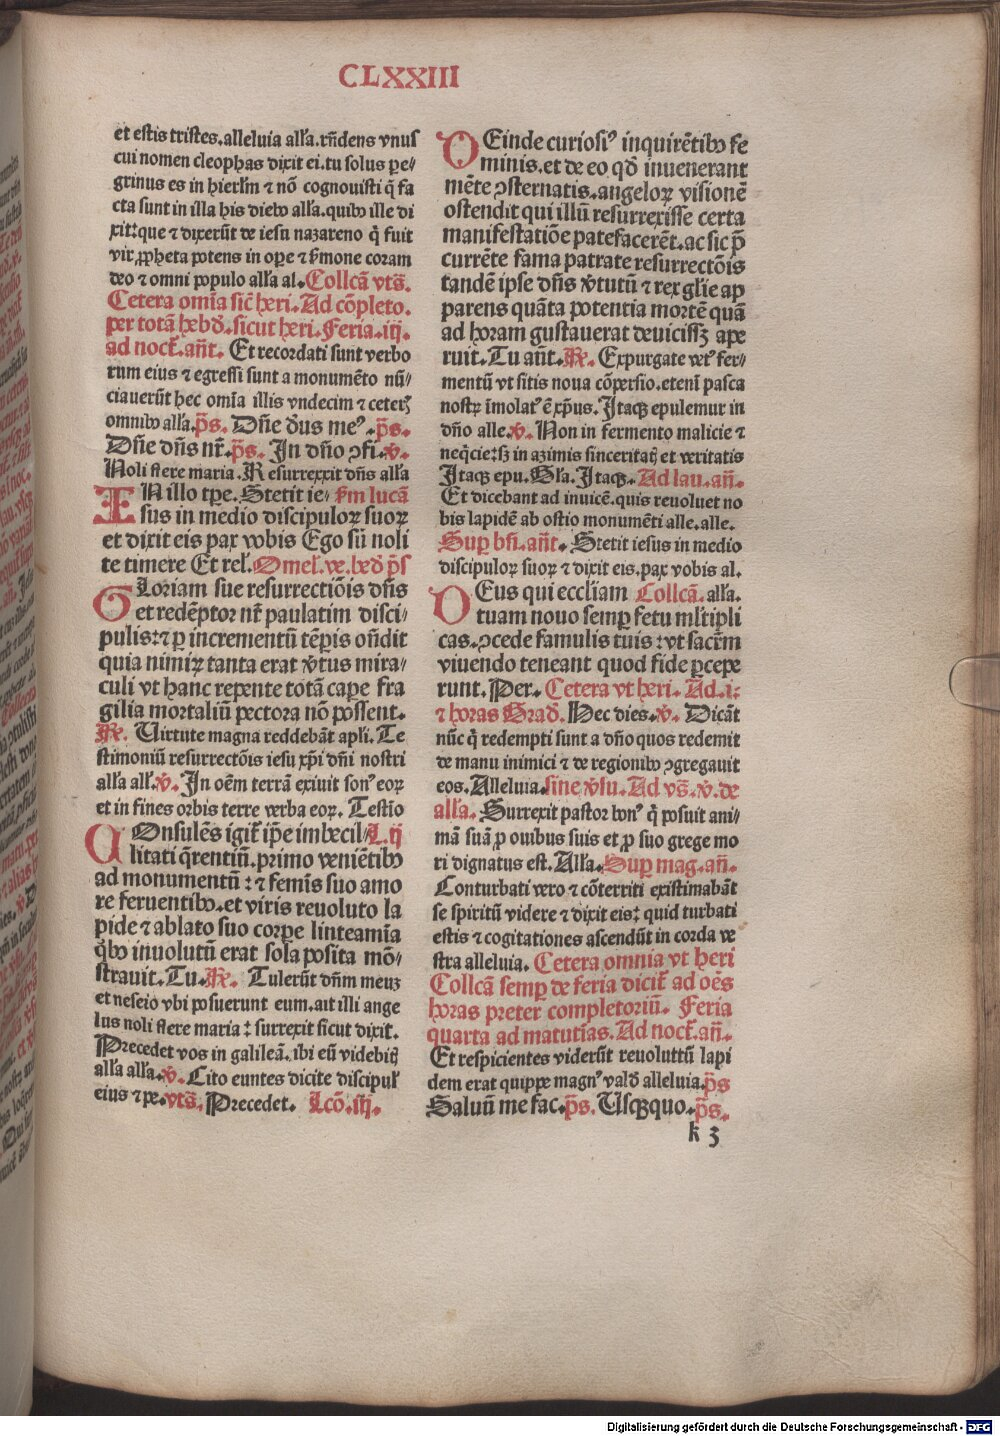 CLXXIII
et estis tristes.alleluia alła.rñdens vnus
cui nomen cleophas dixit ei.tu solus ꝑe⸗
grinus es in hierłm ⁊ nõ cognouisti q̃ fa
cta sunt in illa his diebꝰ alła.quibꝰ ille di
xit:que ⁊ dixerũt de iesu nazareno q̃ fuit
vir ꝓpheta potens in oꝑe ⁊ ẜmone coram
deo ⁊ omni populo alła al.Collcã vts̃.
Cetera om̃ia sic̃ heri.Ad cõpleto.
per totã hebd̃.sicut heri.Feria.iij.
ad noct̃.añt. Et recordati sunt verbo
rum eius ⁊ egressi sunt a monumẽto nũ⸗
ciauerũt hec om̃ia illis vndecim ⁊ ceterꝭ
omnibꝰ alła.p̃s. Dñe d̃us meꝰ.p̃s.
Dñe dñs nr̃.p̃s. In dño ↄfi.v̾.
Noli flere maria.Resurrexxit dñs alła
IN illo tp̃e.Stetit ie⸗ ẜm lucã
sus in medio discipuloꝝ suoꝝ
et dixit eis pax vobis Ego sũ noli
te timere Et reł.Omeł.ve.bed̃ p̃s
GLoriam sue resurrectiõis dñs
et redẽptor nr̃ paulatim disci⸗
pulis:⁊ ꝑ incrementũ tẽp̱is oñdit
quia nimiꝝ tanta erat v̾tus mira⸗
culi vt hanc repente totã caꝑe fra
gilia mortaliũ pectora nõ possent.
R̃. Uirtute magna reddebãt apłi.Te
stimoniũ resurrectõis iesu xp̃i dñi nostri
alła alł.v̾.In oẽm terrã exiuit sonꝰ eoꝝ
et in fines orbis terre verba eoꝝ. Testio
COnsulẽs igit̃ ip̃e imbecil⸗L.ij
litati q̃rentiũ.primo veniẽtibꝰ
ad monumentũ:⁊ femĩs suo amo
re feruentibꝰ.et viris reuoluto la
pide ⁊ ablato suo corꝑe linteamĩa
q̃bꝰ inuolutũ erat sola posita mõ⸗
strauit.Tu.R̃. Tulerũt dñm meuꝫ
et nescio vbi posuerunt eum.ait illi ange
lus noli flere maria:surrexit sicut dixit.
Precedet vos in galileã.ibi eũ videbitꝭ
alła alła.v̾.Cito euntes dicite discipuł
eius ⁊ pe.vts̃.Precedet. Lcõ.iij.
DEinde curiosiꝰ inquirẽtibꝰ fe
minis.et de eo qd̃ inuenerant
mẽte ↄsternatis.angeloꝝ visionẽ
ostendit qui illũ resurrexisse certa
manifestatiõe patefacerẽt.ac sic p̃
currẽte fama patrate resurrectõis
tandẽ ipse dñs v̾tutũ ⁊ rex glĩe ap
parens quãta potentia mortẽ quã
ad horam gustauerat deuicissꝫ ape
ruit.Tu añt.R̃. Expurgate vetꝰ fer⸗
mentũ vt sitis noua cõpersio.etenĩ pasca
nostꝝ ĩmolatꝰ ẽ xp̃us.Itaqꝫ epulemur in
dño alle.v̾.Non in fermento malicie ⁊
neqͥcie:sꝫ in azimis sinceritatꝭ et veritatis
Itaqꝫ epu.Gła.Itaqꝫ.Ad lau.añ.
Et dicebant ad inuicẽ.quis reuoluet no
bis lapidẽ ab ostio monumẽti alle.alle.
Suꝑ bñ.añt.Stetit iesus in medio
discipuloꝝ suoꝝ ⁊ dixit eis.pax vobis al.
DEus qui eccliam Collcã.alła.
tuam nouo semꝑ fetu młtipli
cas.ↄcede famulis tuis:vt sacr̃m
viuendo teneant quod fide ꝑcepe
runt.Per.Cetera vt heri.Ad.i:
⁊ horas Grad̃.Hec dies.v̾. Dicãt
nũc q̃ redempti sunt a dño quos redemit
de manu inimici ⁊ de regionibꝰ ↄgregauit
eos.Alleluia.sine v̾su.Ad vs̃.v̾.de
alła.Surrexit pastor bonꝰ q̃ posuit ani⸗
mã suã ꝑ ouibus suis et ꝑ suo grege mo
ri dignatus est.Alła.Suꝑ mag.añ.
Conturbati vero ⁊ cõterriti existimabãt
se spiritũ videre ⁊ dixit eis:quid turbati
estis ⁊ cogitationes ascendũt in corda ve
stra alleluia. Cetera omnia vt heri
Collcã semꝑ de feria dicit̃ ad oẽs
horas preter completoriũ. Feria
quarta ad matutĩas.Ad noct̃.añ.
Et respicientes viderũt reuoluttũ lapi
dem erat quippe magnꝰ vald̃ alleluia.p̃s
Saluũ me fac.p̃s. Usqꝫquo.p̃s.
k 3
Digitalisierung gefördert durch die Deutsche Forschungsgemeinschaft - DFG